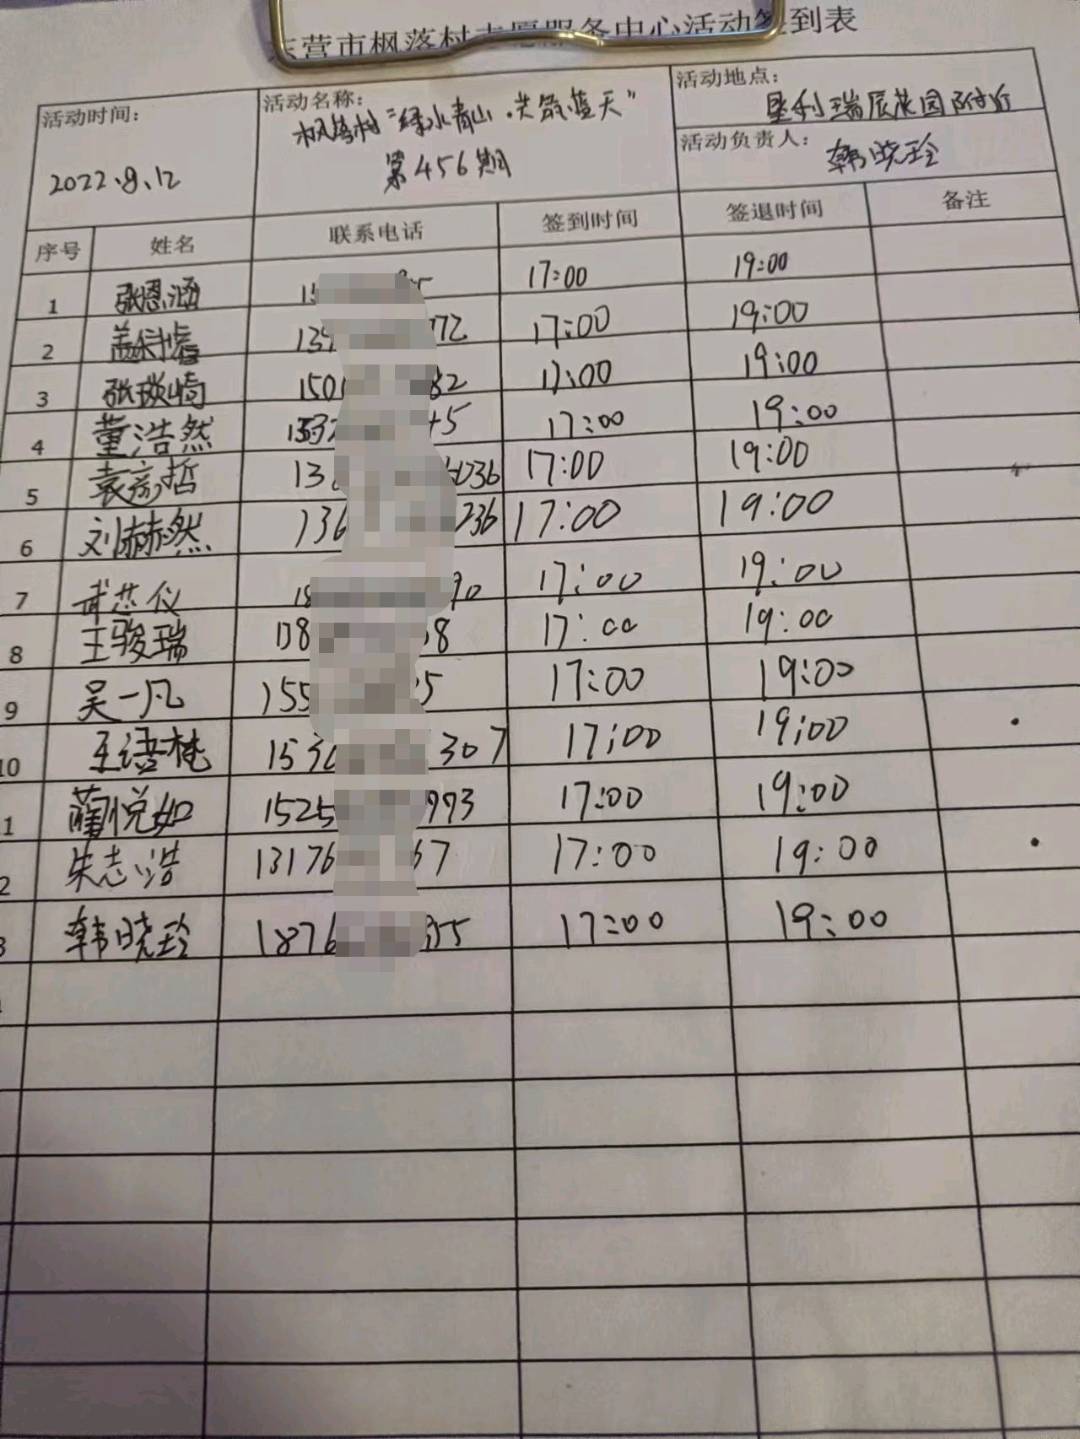 东营市枫落村志愿服务中心活动签到表
活动时间： 活动名称： 活动地点：
枫落村“绿水青山·共筑蓝天” 垦利瑞辰花园附近
2022.9.12 第456期 活动负责人： 韩晓玲
序号 姓名 联系电话 签到时间 签退时间 备注
1 张恩涵 15 17:00 19:00
2 139 772 17:00 19:00
3 张琰崎 150 82 17:00 19:00
4 董浩然 1553 45 17:00 19:00
5 袁彦哲 13 236 17:00 19:00
6 刘赫然 136 236 17:00 19:00
7 武芯仪 18 90 17:00 19:00
8 王骏瑞 138 8 17:00 19:00
9 吴一凡 155 5 17:00 19:00
10 王语梵 153 307 17:00 19:00
1 蔺悦如 1525 993 17:00 19:00
2 朱志浩 13176 67 17:00 19:00
3 韩晓玲 1876 55 17:00 19:00